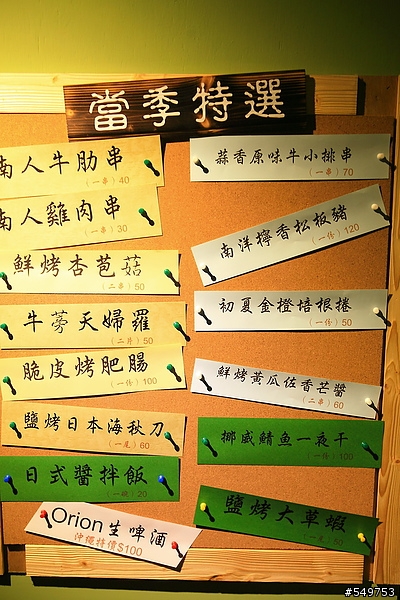 當季特選
南人牛肋串
(一串) 40
南人雞肉串
(一串) 30
鮮烤杏苞菇
(二串) 50
牛蒡天婦羅
(二片) 50
脆皮烤肥腸
(一份) 100
鹽烤日本海秋刀
(一尾) 60
日式醬拌飯
(一碗) 20
Orion生啤酒
沖繩特價$100
蒜香原味牛小排串
(一串) 70
南洋檸香松板豬
(一份) 120
初夏金橙培根捲
(一份) 50
鮮烤黃瓜佐香芒醬
(二串) 60
挪威鯖魚一夜干
(一份) 100
鹽烤大草蝦
(一尾)
#549753